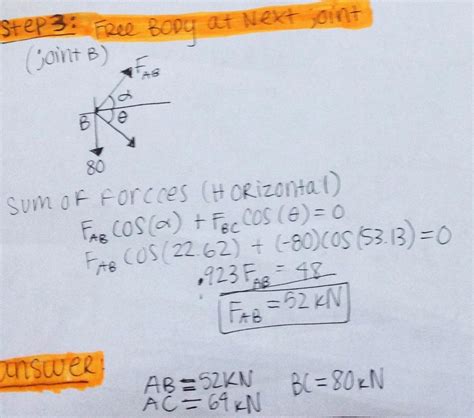 Step 3: Free Body at Next joint
(joint B)
F_AB
α
B
θ
80
Sum of Forcces (Horizontal)
F_AB cos(α) + F_BC cos(θ) = 0
F_AB cos(22.62) + (-80)cos(53.13) = 0
.923 F_AB = 48
F_AB = 52 kN
answer
AB = 52KN BC = 80kN
AC = 64 kN